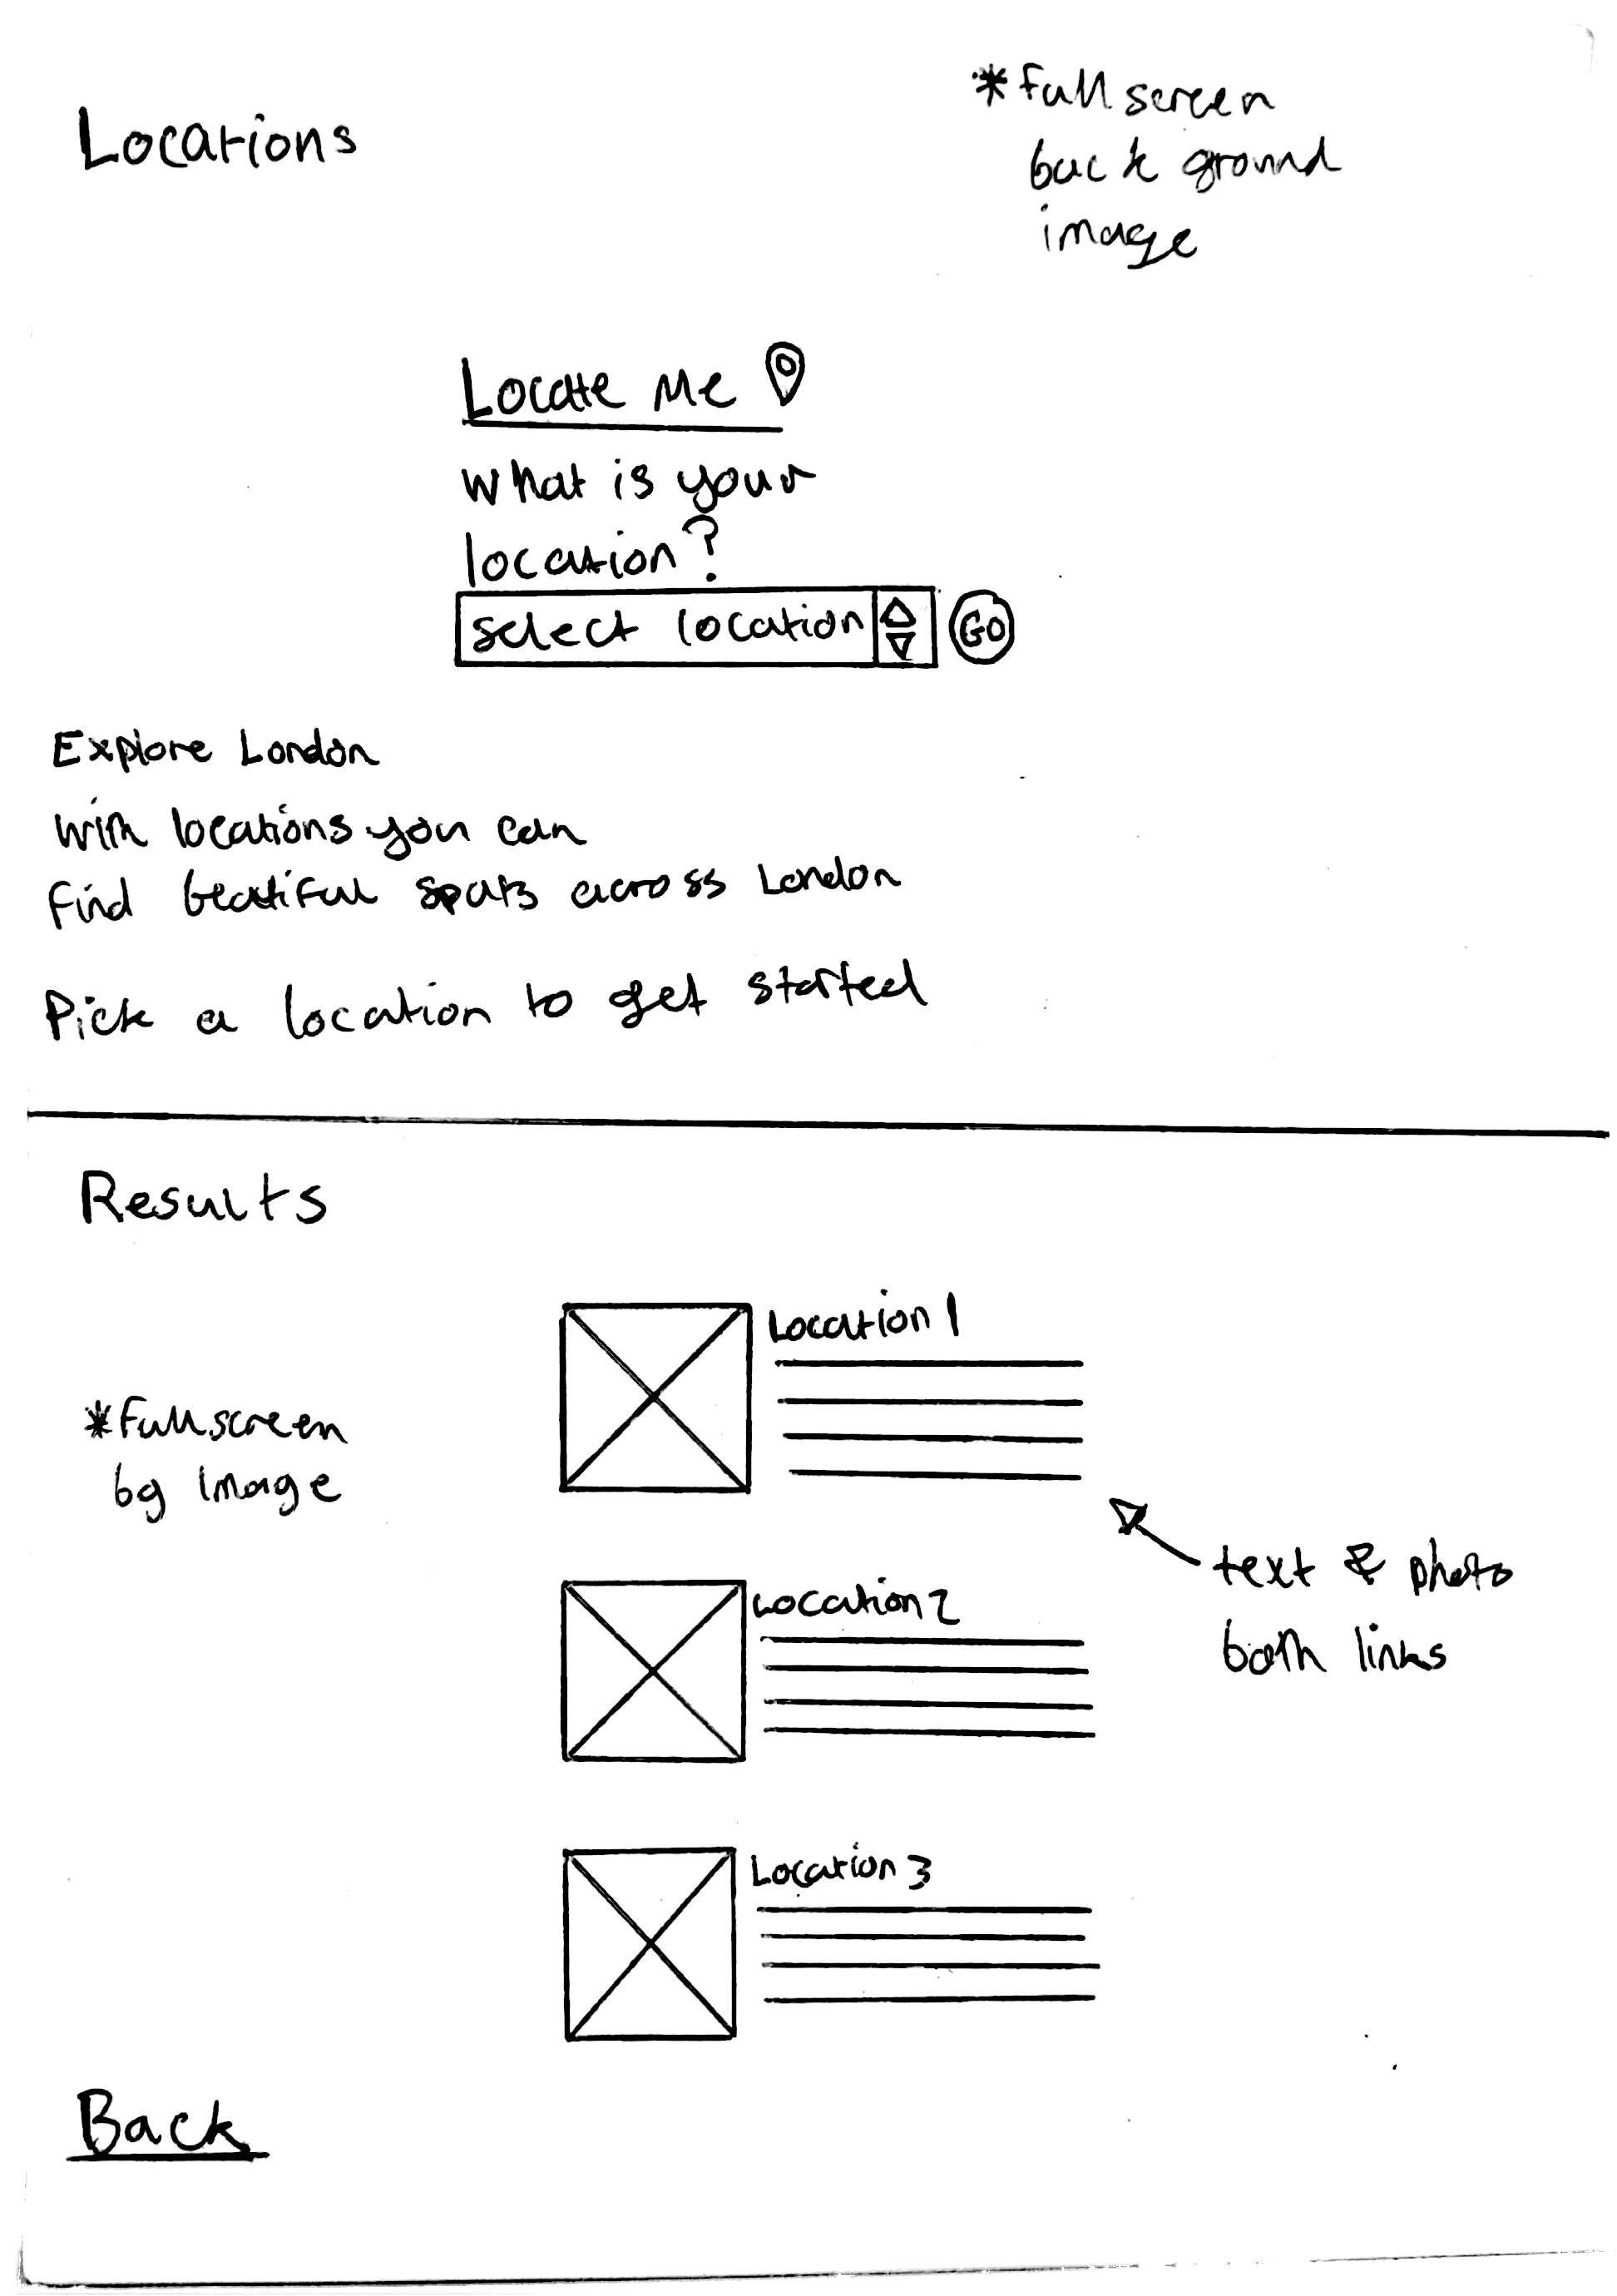 Locations
*Full screen
back ground
image
Locate Me
What is your
location?
select location
GO
Explore London
With locations you can
find beatiful spots across London
Pick a location to get started
Results
*Full screen
bg image
Location 1
text & photo
both links
Location 2
Location 3
Back